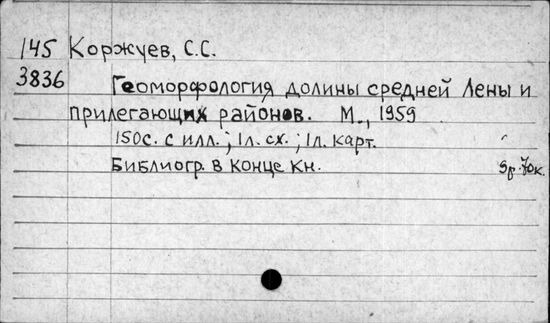 145 Коржуев, С.С.
3836 Геоморфология долины средней Лены и
прилегающих районов. М., 1959
150с. с илл.; 1л. сх.; 1л. карт.
Библиогр. в конце кн. 9р.70к.